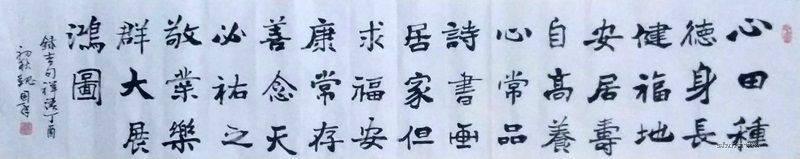 心田種
德身長
健福地
安居壽
自高養
心常品
詩書画
居家但
求福安
康常存
善念天
必祐之
敬業樂
群大展
鴻圖
錄吉句祥語丁酉
初秋魏